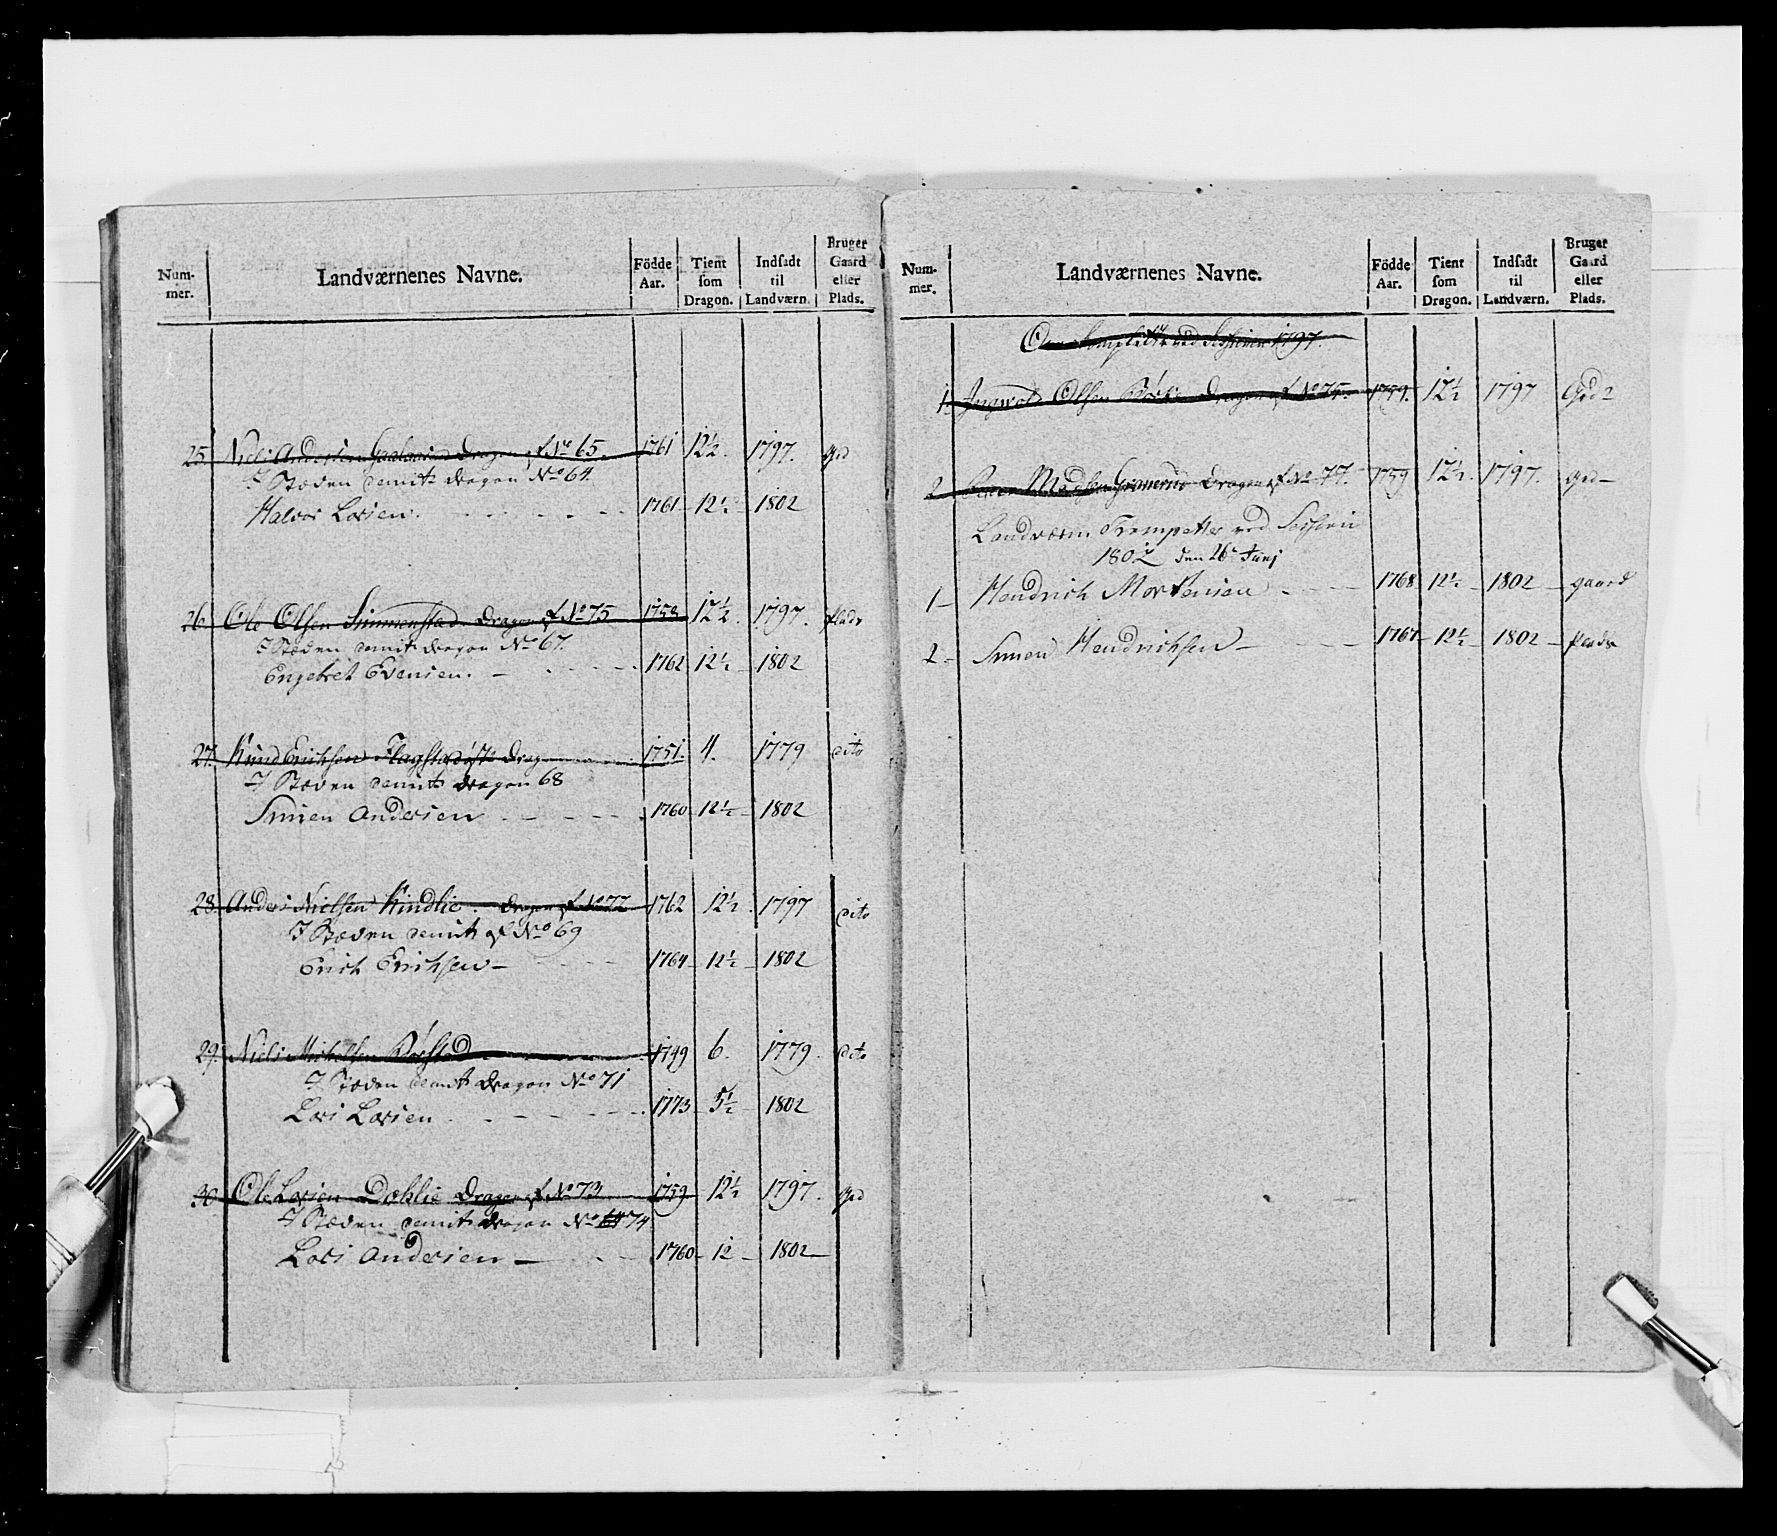 Num-mer. Landværnenes Navne. Födde Aar. Tient som Dragon. Indsadt til Landværn. Bruger Gaard eller Plads.
25. Niels Andersen Dragon af No 65. 1761 12½. 1797. Grd
I Stæden demit: dragon No 64.
Halvor Larsen. 1761 12½ 1802
26. Ole Olsen Simmenstad. Dragon af No 75 12½. 1797. Plads
I Stæden demit: dragon No 67.
Engebret Evensen. 1762 12½ 1802
27. Knud Erichsen Flagstad dragon 1751. 4. 1779 dito
I Stæden demit: dragon 68
Simen Andersen 1760 12½ 1802
28. Anders Nielsen Kindlie. dragon af No 72 1762 12½. 1797 dito
I Stæden demit: af No 69
Erich Erichsen 1764 12½ 1802
29. Niels Michelsen 1749 6. 1779. dito
I Stæden demit: dragon No 71
Lars Larsen 1773 5½ 1802
30. Ole Larsen Dæhlie Dragon af No 73 1759 12½ 1797. Grd
I Stæden demit: dragon No 74
Lars Andersen 1760 12 1802
Num-mer. Landværnenes Navne. Födde Aar. Tient som Dragon. Indsadt til Landværn. Bruger Gaard eller Plads.
ved Sessionen 1797.
1. Ingvold Olsen Dragon af No 75. 12½ 1797 Grd
2 Madsen Dragon af No 77. 1759 12½. 1797. Grd
Landværn Trompetter ved Session
1802 den 26 Junj
1 Hendrich Mortensen 1768 12½ 1802 gaard
2 Simen Hendrichsen 1767 12½ 1802 Plads